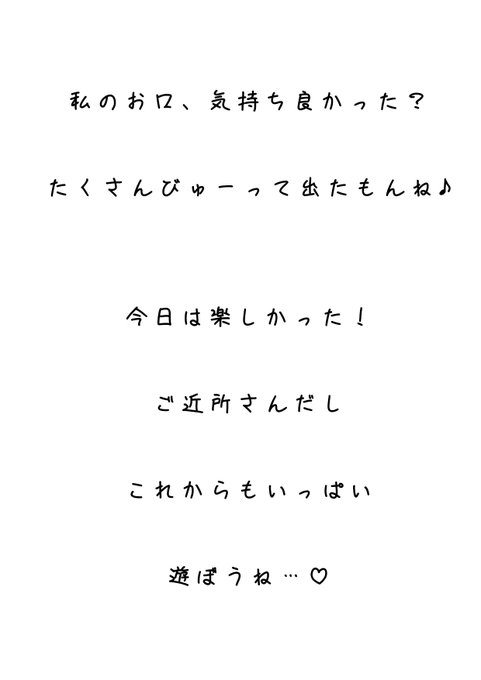 私のお口、気持ち良かった？
たくさんびゅーって出たもんね♪
今日は楽しかった！
ご近所さんだし
これからもいっぱい
遊ぼうね…♡